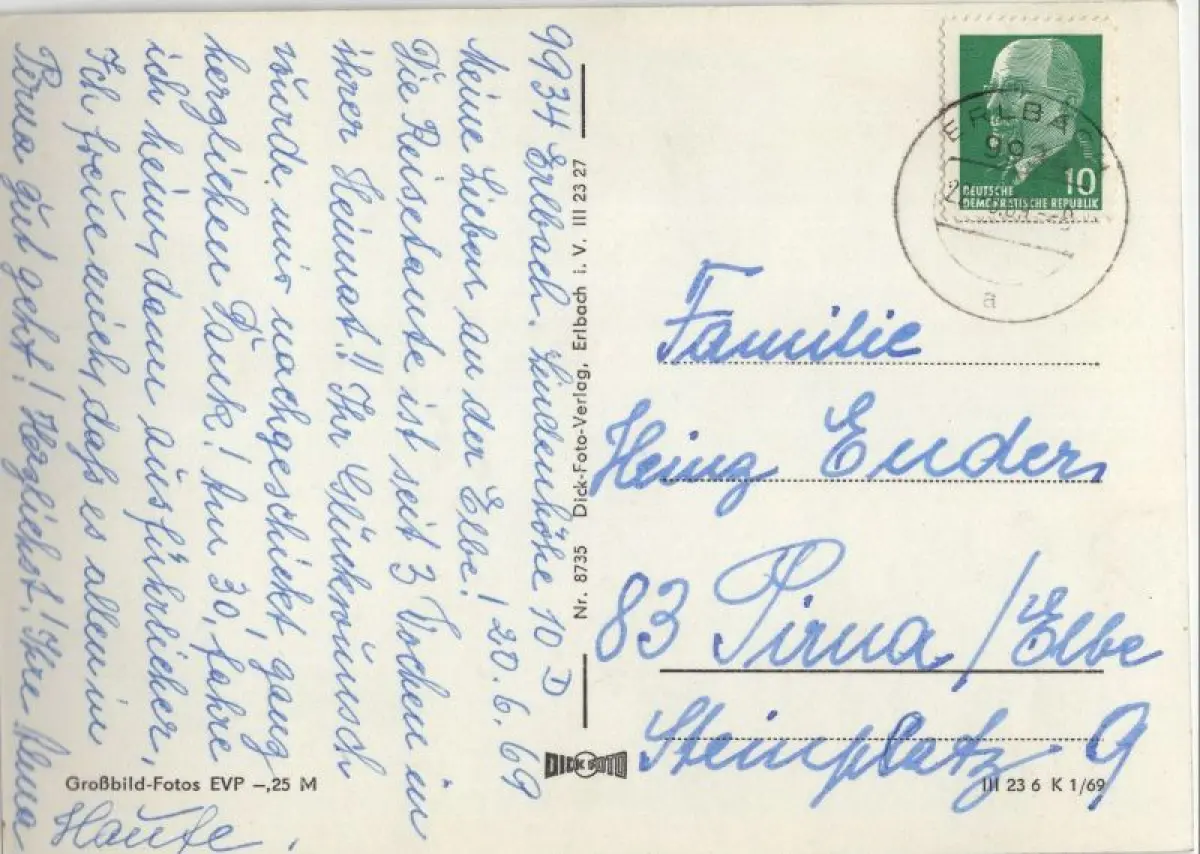 9934 Erlbach. Lindenhöhe 10 D
Meine Lieben an der Elbe! 20. 6. 69
Die Reisetante ist seit 3 Wochen in
ihrer Heimat!! Ihr Glückwunsch
wurde mir nachgeschickt, ganz
herzlichen Dank! Am 30. fahre
ich heim, dann ausführlicher,
Ich freue mich, daß es allen in
Pirna gut geht! Herzlichst! Ihre Alma
Haufe.
Großbild-Fotos EVP -,25 M
Nr. 8735 Dick-Foto-Verlag, Erlbach i. V. III 23 27
DICK FOTO
ERLBACH
a
10
DEUTSCHE
DEMOKRATISCHE REPUBLIK
Familie
Heinz Enders
83 Pirna/Elbe
Steinplatz 9
III 23 6 K 1/69